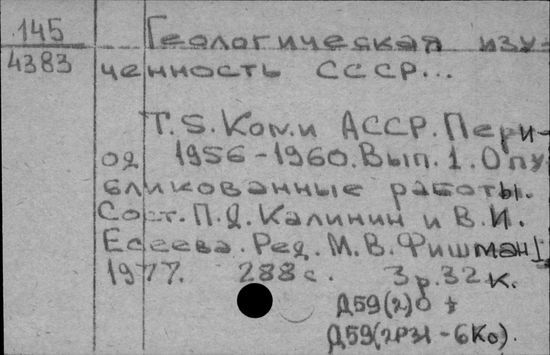 145 Геологическая изу-
4383 ченность СССР...
Т.5. Коми АССР. Пери-
од 1956-1960. Вып.1. Опу
бликованные работы.
Сост. П.Д. Калинин и В.И.
Есеева. Ред. М.В. Фишман
1977. 288с. 3р.32к.
Д59(2)0 +
Д59(2Р31-6Ко).